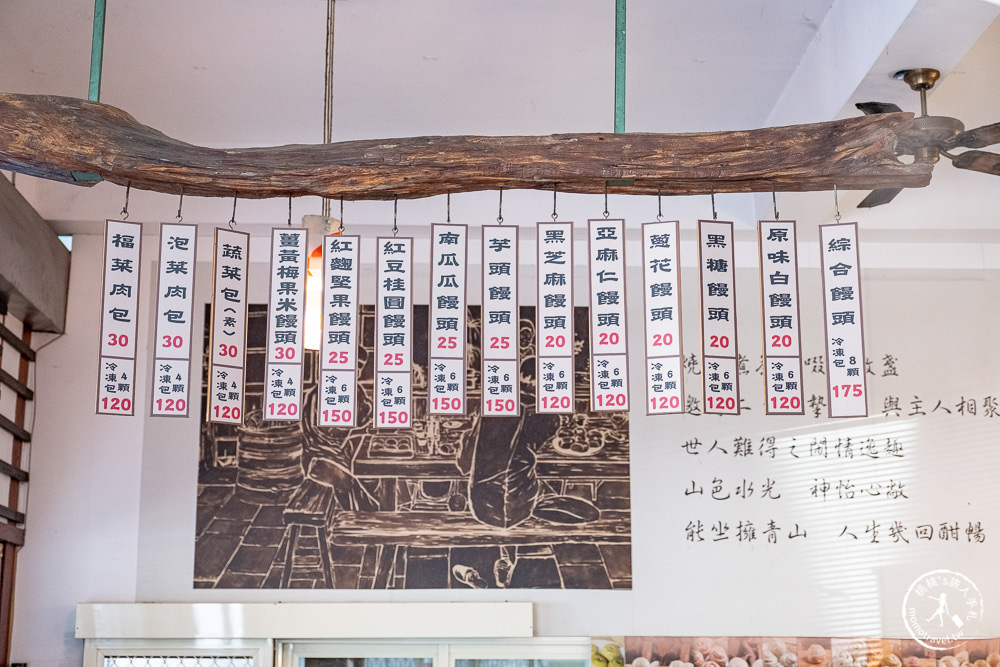 福菜肉包
30
冷凍包 4顆
120
泡菜肉包
30
冷凍包 4顆
120
蔬菜包(素)
30
冷凍包 4顆
120
薑黃梅果米饅頭
30
冷凍包 4顆
120
紅麴堅果饅頭
25
冷凍包 6顆
150
紅豆桂圓饅頭
25
冷凍包 6顆
150
南瓜瓜饅頭
25
冷凍包 6顆
150
芋頭饅頭
25
冷凍包 6顆
150
黑芝麻饅頭
20
冷凍包 6顆
120
亞麻仁饅頭
20
冷凍包 6顆
120
蔥花饅頭
20
冷凍包 6顆
120
黑糖饅頭
20
冷凍包 6顆
120
原味白饅頭
20
冷凍包 6顆
120
綜合饅頭
冷凍包 8顆
175
燒 盞
與主人相聚
世人難得之閒情逸趣
山色水光 神怡心敞
能坐擁青山 人生幾回酣暢
momotravel.tw